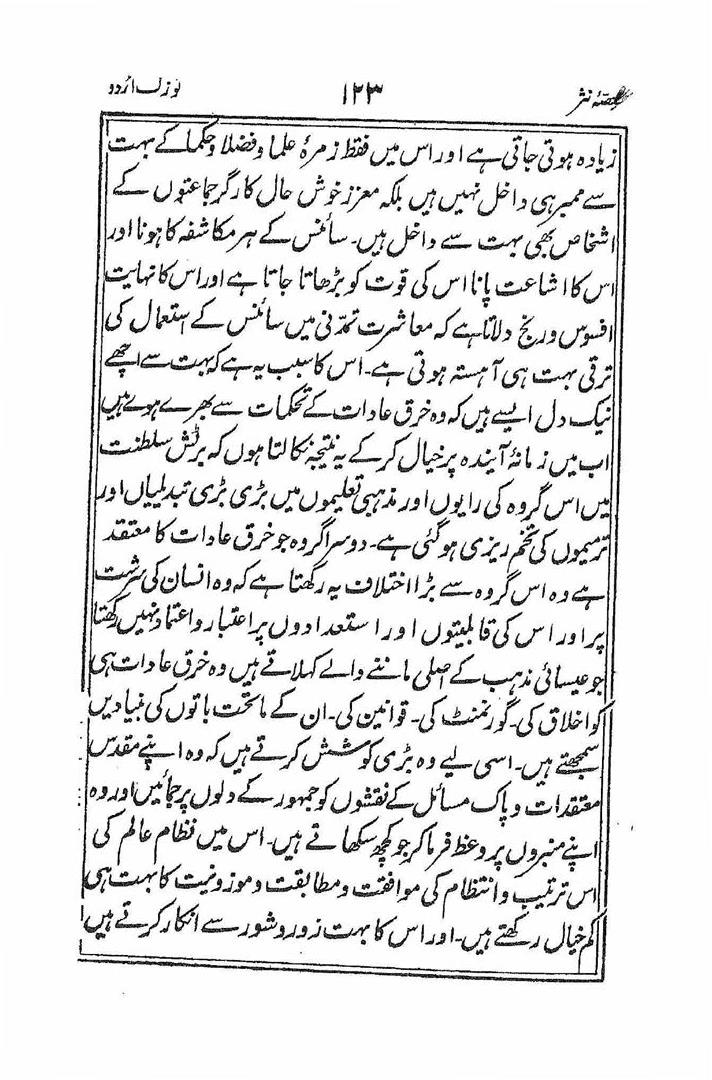 حصہ نثر ۱۲۳ نوزل اردو
زیادہ ہوتی جاتی ہے اور اس میں فقط زمرۂ علما و فضلا و حکما کے بہت
سے ممبر ہی داخل نہیں ہیں بلکہ معزز خوش حال کارگر جماعتوں کے
اشخاص بھی بہت سے داخل ہیں۔ سائنس کے ہر مکاشفہ کا ہونا اور
اس کا اشاعت پانا اس کی قوت کو بڑھاتا جاتا ہے اور اس کا نہایت
افسوس و رنج دلاتا ہے کہ معاشرت تمدنی میں سائنس کے استعمال کی
ترقی بہت ہی آہستہ ہوتی ہے۔ اس کا سبب یہ ہے کہ بہت سے اچھے
نیک دل ایسے ہیں کہ وہ خرق عادات کے تحکمات سے بھرے ہوے ہیں
اب میں زمانۂ آیندہ پر خیال کر کے یہ نتیجہ نکالتا ہوں کہ برٹش سلطنت
میں اس گروہ کی رایوں اور مذہبی تعلیموں میں بڑی بڑی تبدلیاں اور
ترمیموں کی تخم ریزی ہو گئی ہے۔ دوسرا گروہ جو خرق عادات کا معتقد
ہے وہ اس گروہ سے بڑا اختلاف یہ رکھتا ہے کہ وہ انسان کی سرشت
پر اور اس کی قابلیتوں اور استعدادوں پر اعتبار و اعتماد نہیں رکھتا
جو عیسائی مذہب کے اصلی ماننے والے کہلاتے ہیں وہ خرق عادات ہی
کو اخلاق کی۔ گورنمنٹ کی۔ قوانین کی۔ ان کے ماتحت باتوں کی بنیادیں
سمجھتے ہیں۔ اسی لیے وہ بڑی کوشش کرتے ہیں کہ وہ اپنے مقدس
معتقدات و پاک مسائل کے نقشوں کو جمہور کے دلوں پر جمائیں اور وہ
اپنے منبروں پر وعظ فرما کر جو کچھ سکھاتے ہیں۔ اس میں نظام عالم کی
اس ترتیب و انتظام کی موافقت و مطابقت و موزونیت کا بہت ہی
کم خیال رکھتے ہیں۔ اور اس کا بہت زور و شور سے انکار کرتے ہیں